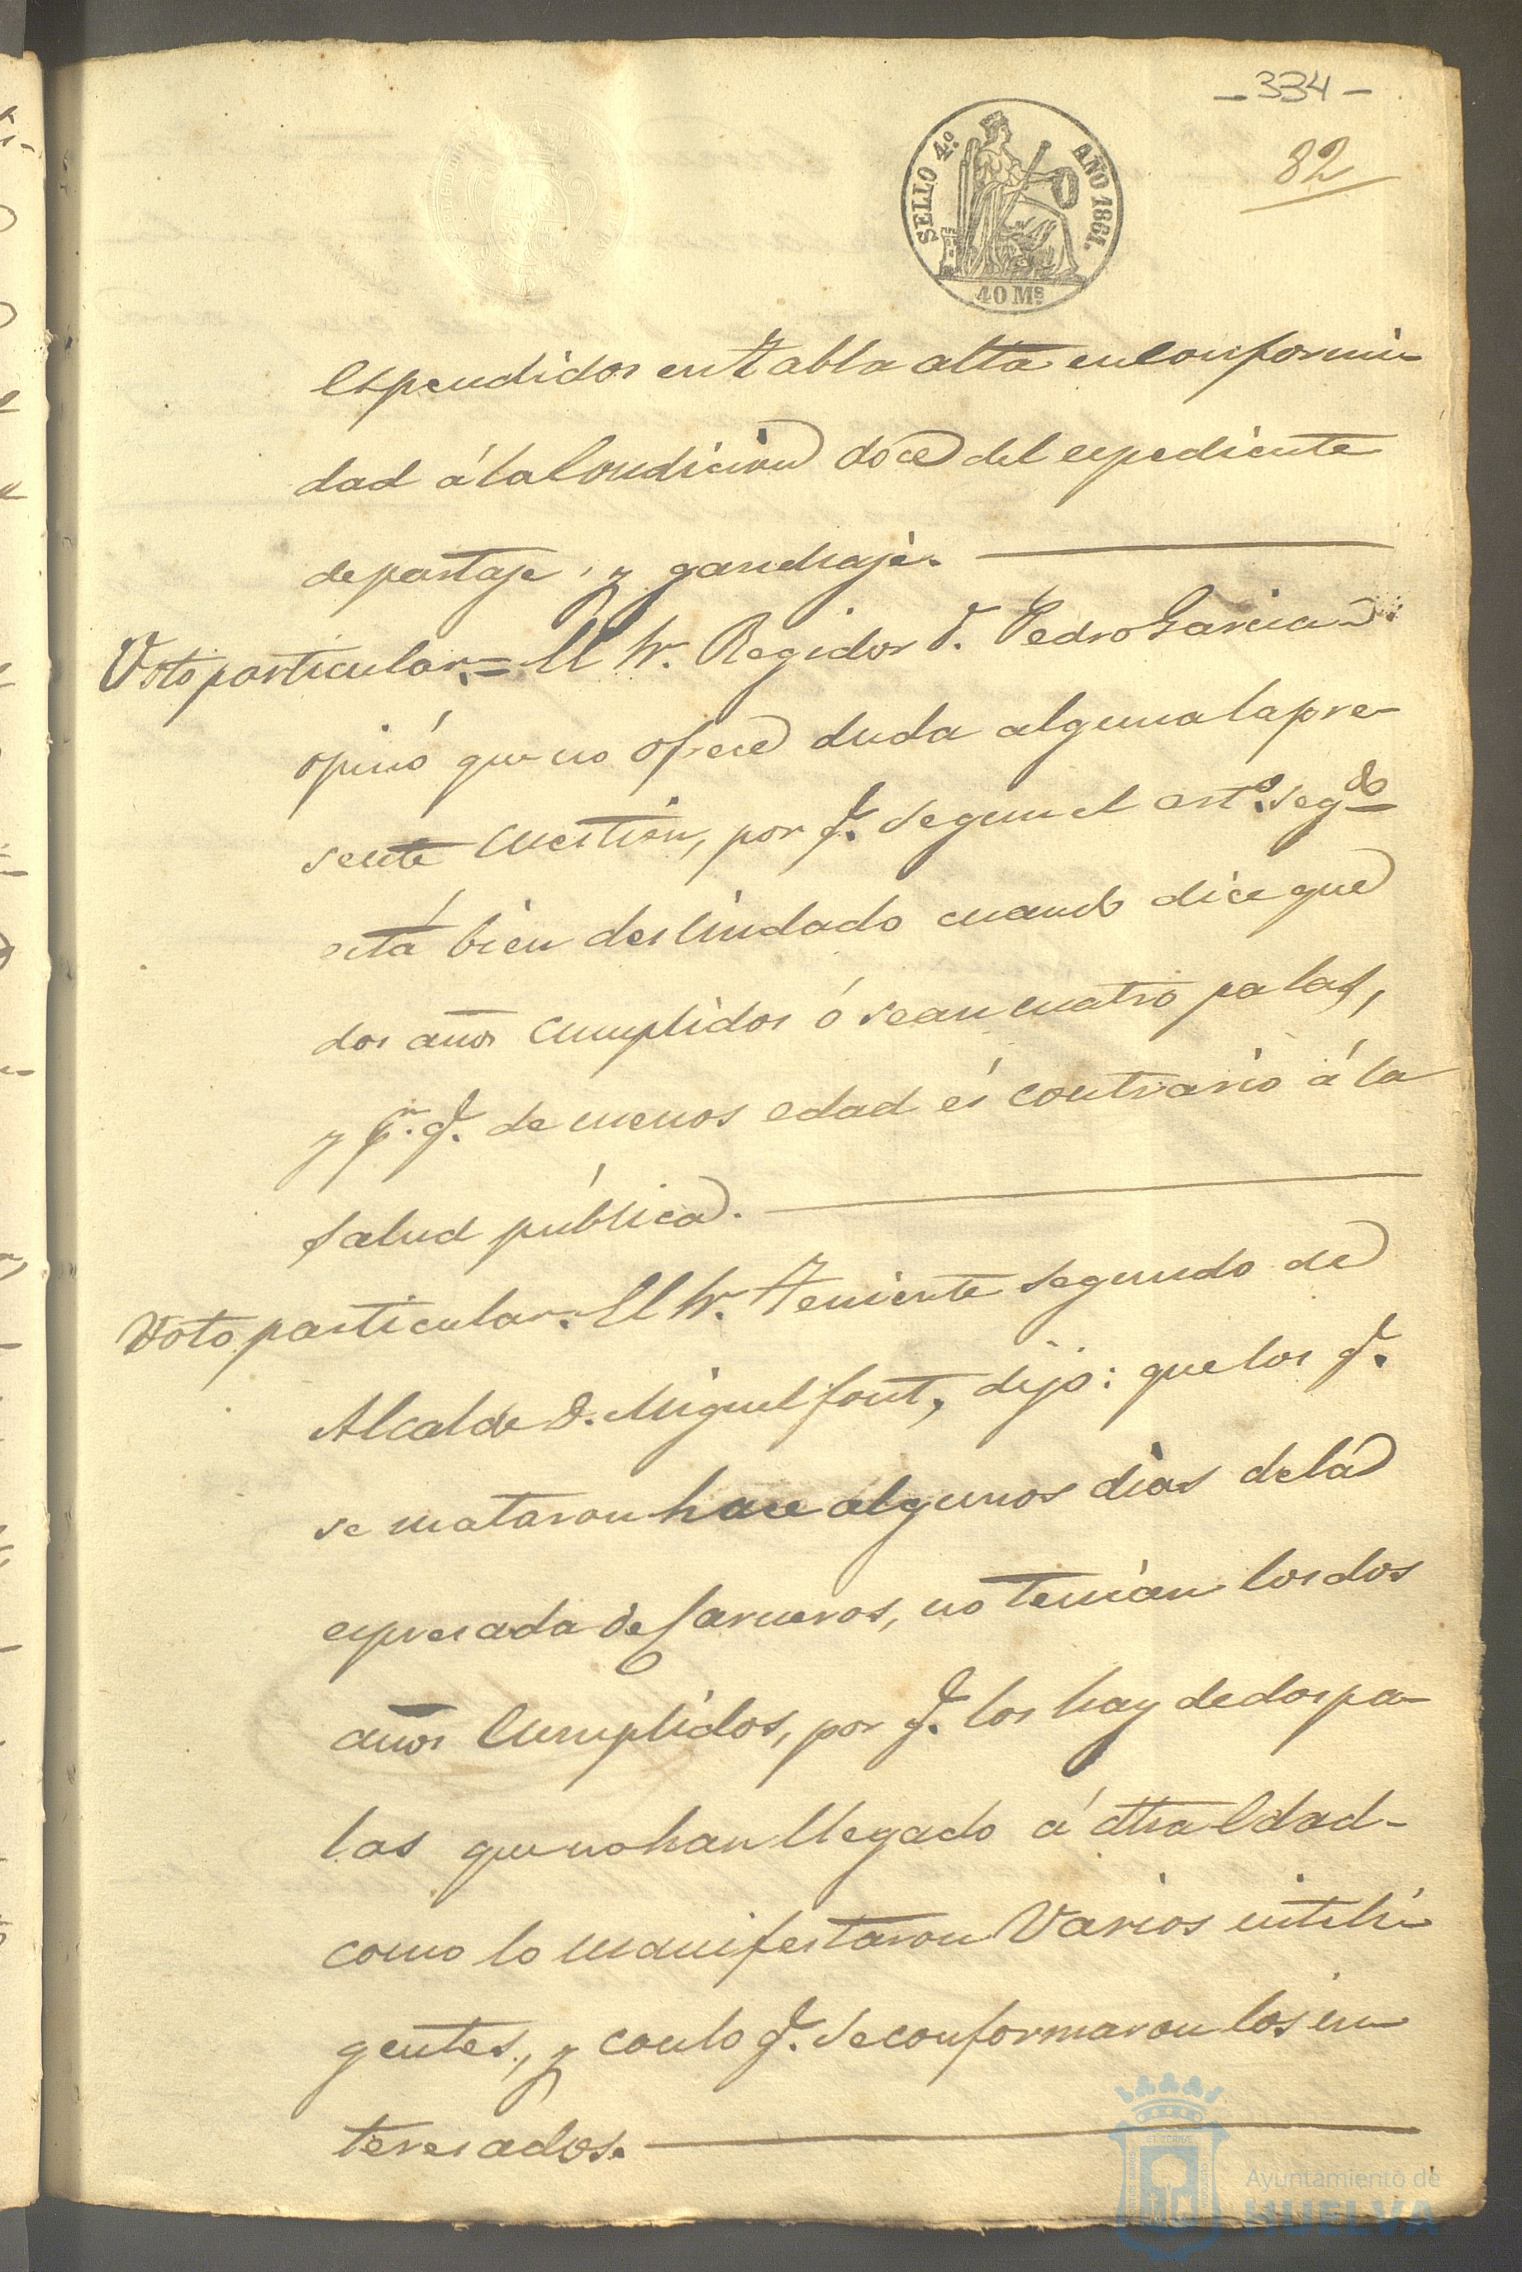 - 334 -
82
SELLO 4º. AÑO 1861.
40 Ms
espendidos en Tabla alta en conformi
dad á la Condicion doce del espediente
de partaje, y ganchaje.
Voto particular = El Sr. Regidor D. Pedro Garcia
opinó que no ofrece duda alguna la pre-
sente cuestion, por q. segun el artº. segdo
está bien deslindado cuando dice que
dos años cumplidos ó sean cuatro palas,
y pr. q. de menos edad és contrario á la
salud pública.
Voto particular. El Sr. Teniente segundo de
Alcalde D. Miguel font, dijo: que los q.
se mataron hace algunos dias de la
espresada de Carneros, no tenian los dos
años Cumplidos, por q. los hay de dos pa-
las que no han llegado á dha Edad-
como lo manifestaron Varios inteli
gentes, y con lo q. se conformaron los in
teresados.
Ayuntamiento de
HUELVA